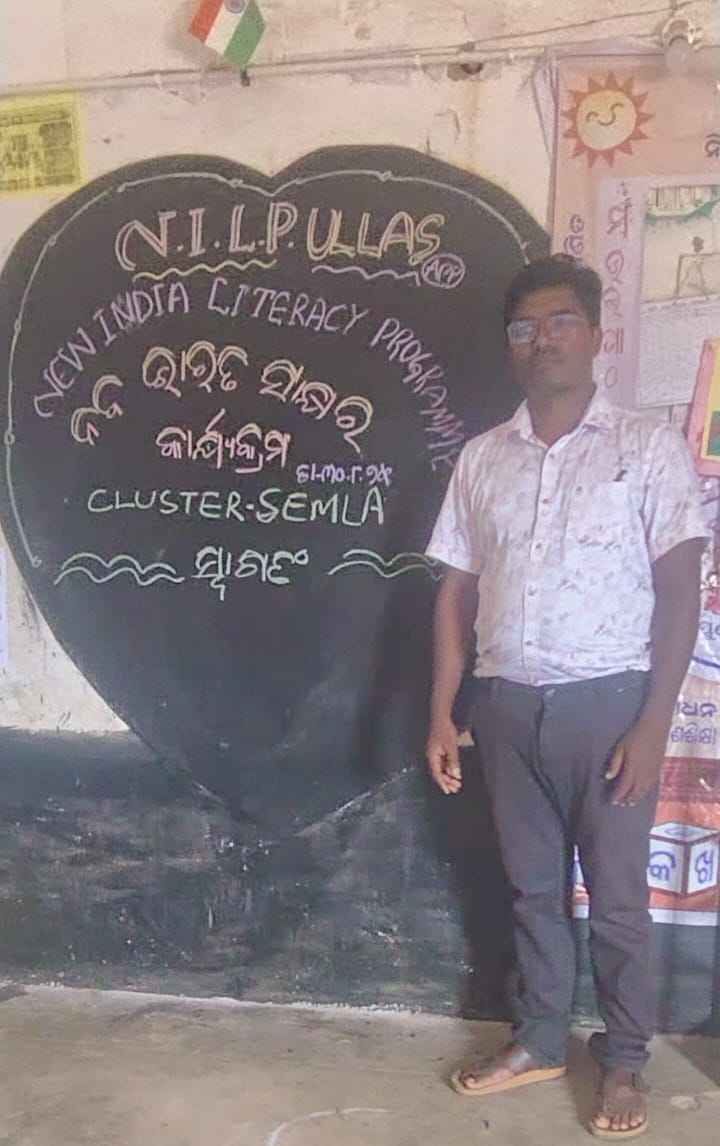 N.I.L.P. ULLAS
APP
NEW INDIA LITERACY PROGRAMME
ନବ ଭାରତ ସାକ୍ଷର
କାର୍ଯ୍ୟକ୍ରମ
ତା-୩୦.୮.୨୫
CLUSTER-SEMLA
ସ୍ୱାଗତଂ
କ ଖ